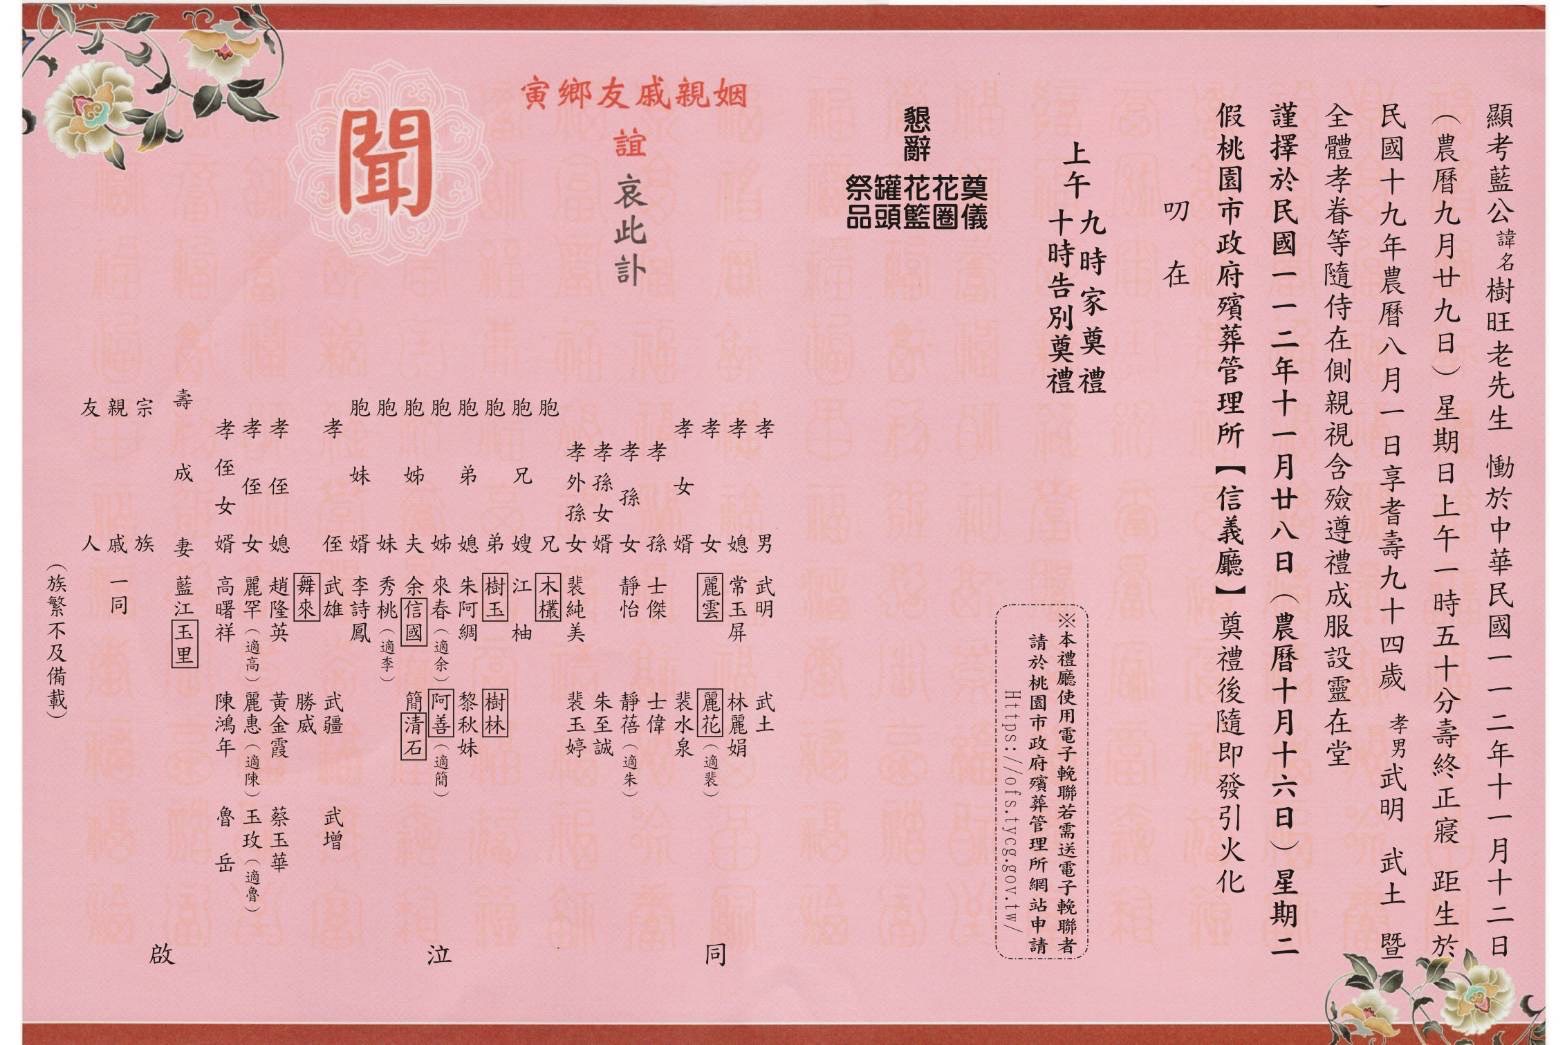 顯考藍公諱名樹旺老先生 慟於中華民國一一二年十一月十二日
（農曆九月廿九日）星期日上午一時五十分壽終正寢 距生於
民國十九年農曆八月一日享耆壽九十四歲 孝男武明 武土 暨
全體孝眷等隨侍在側親視含殮遵禮成服設靈在堂
謹擇於民國一一二年十一月廿八日（農曆十月十六日）星期二
假桃園市政府殯葬管理所【信義廳】奠禮後隨即發引火化
叨在
上午 九時家奠禮
十時告別奠禮
※本禮廳使用電子輓聯若需送電子輓聯者
請於桃園市政府殯葬管理所網站申請
Https://ofs.tycg.gov.tw/
懇辭
奠儀
花圈
花籃
罐頭
祭品
姻親戚友鄉寅
誼哀此訃
聞
孝男 武明 武土
孝媳 常玉屏 林麗娟
孝女 麗雲 麗花（適裴）
孝女婿 裴水泉
孝孫 士傑 士偉
孝孫女 靜怡 靜蓓（適朱）
孝孫女婿 朱至誠
孝外孫女 裴純美 裴玉婷
胞兄 木欉
胞兄嫂 江柚
胞弟 樹玉 樹林
胞弟媳 朱阿綢 黎秋妹
胞姊 來春（適余） 阿善（適簡）
胞姊夫 余信國 簡清石
胞妹 秀桃（適李）
胞妹婿 李詩鳳
孝侄 武雄 武疆 武增
舞來 勝威
孝侄媳 趙隆英 黃金霞 蔡玉華
孝侄女 麗罕（適高） 麗惠（適陳） 玉玫（適魯）
孝侄女婿 高曙祥 陳鴻年 魯岳
壽成妻 藍江玉里
宗族
親戚 一同
友人
（族繁不及備載）
同
泣
啟